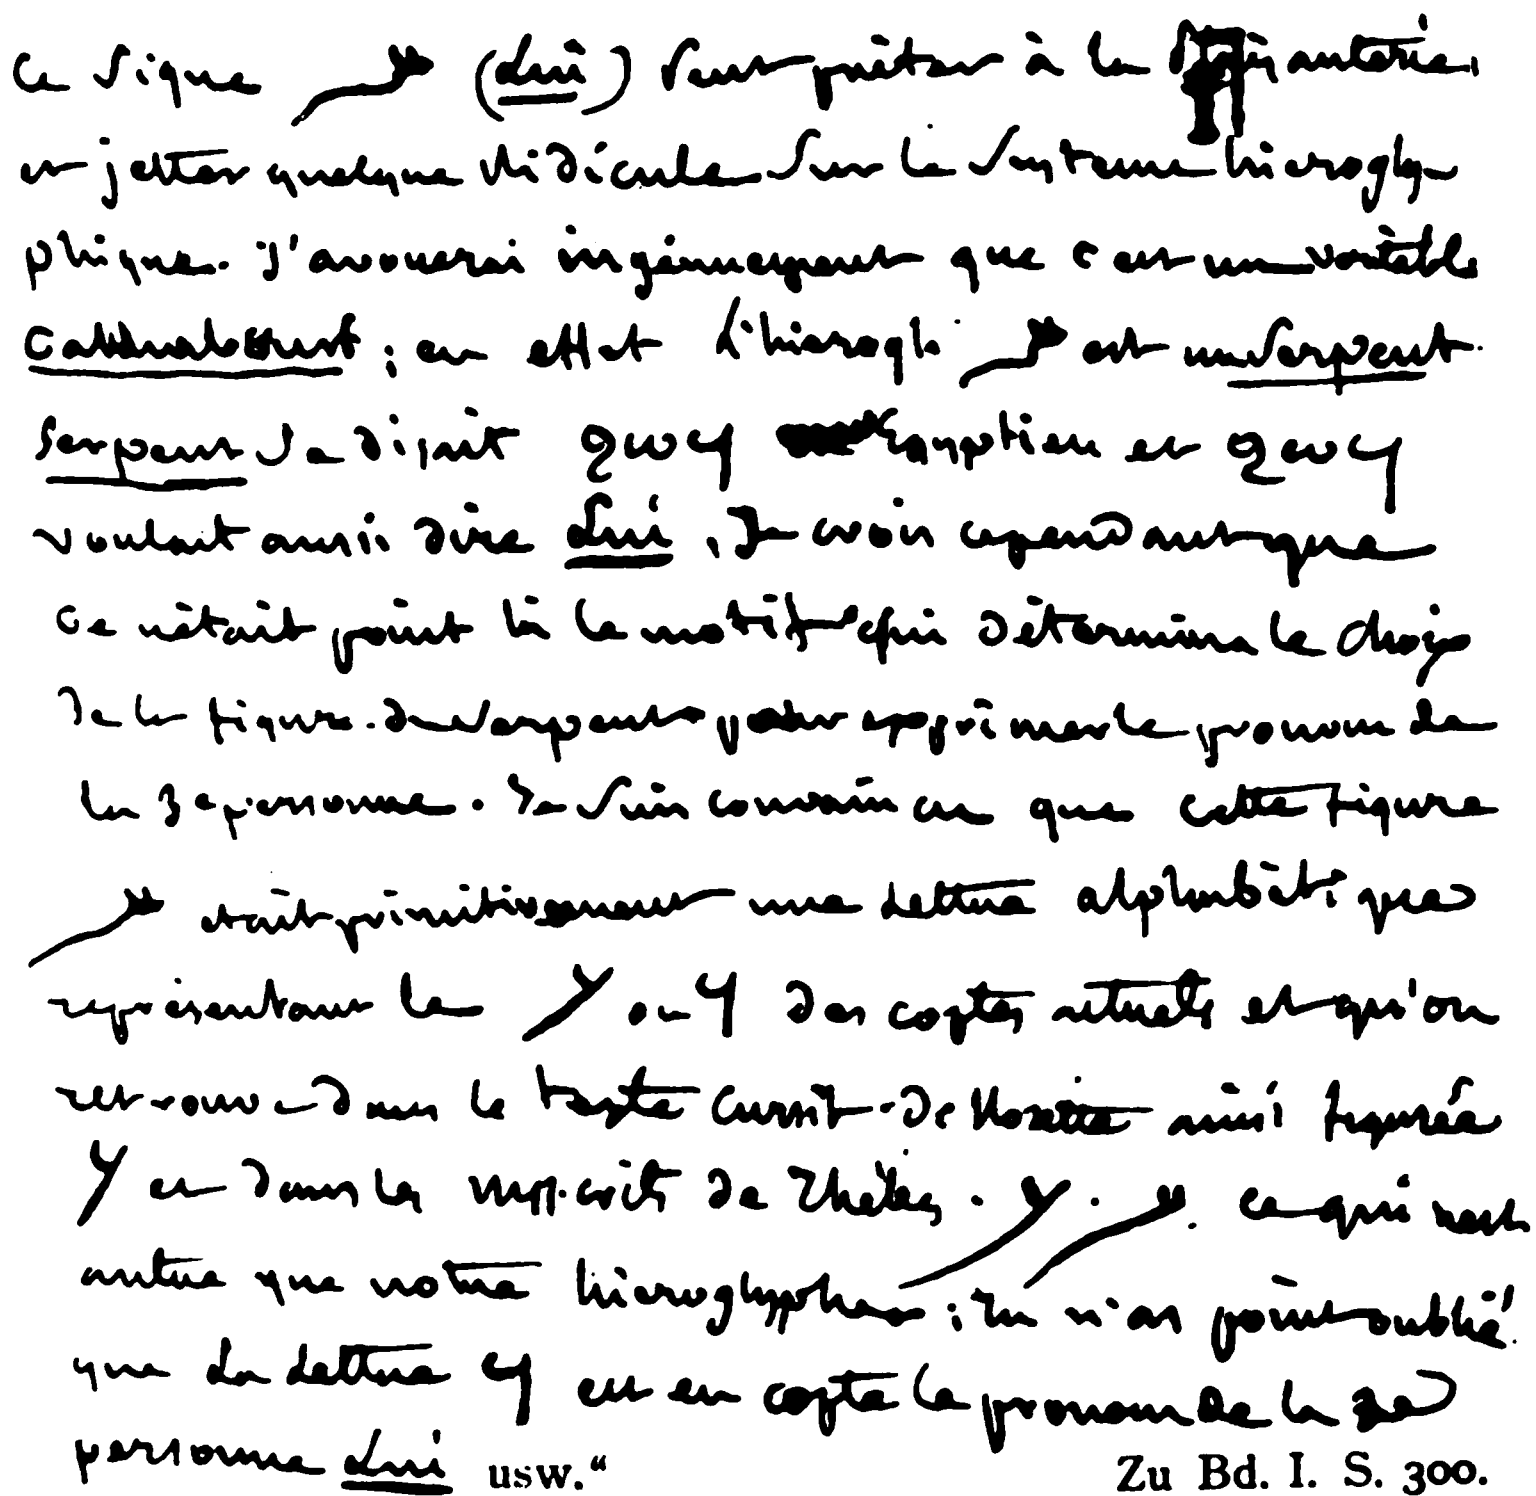 Ce signe (Lui) peut prêter à la plaisanterie
et jetter quelque ridicule sur le systeme hierogly
phique. J'avouerai ingénuement que c'est un véritable
Callembourt ; en effet l'hierogl. est un Serpent.
Serpent se disait ϩⲱϥ Egyptien et ϩⲱϥ
voulait aussi dire Lui, Je crois cependant que
ce n'était point là le motif qui détermina le choix
de la figure du serpent pour exprimer le pronom de
la 3e personne. Je suis convaincu que cette figure
était primitivement une lettre alphabétique
représentant le ou ϥ des coptes actuels et qu'on
retrouve dans le texte cursif de Rosette ainsi figurée
et dans les mss. écrits de Thèbes. ce qui n'est
autre que notre hieroglyphe ; Tu n'as point oublié
que la lettre ϥ est en copte le pronom de la 3e
personne Lui usw.“ Zu Bd. I. S. 300.